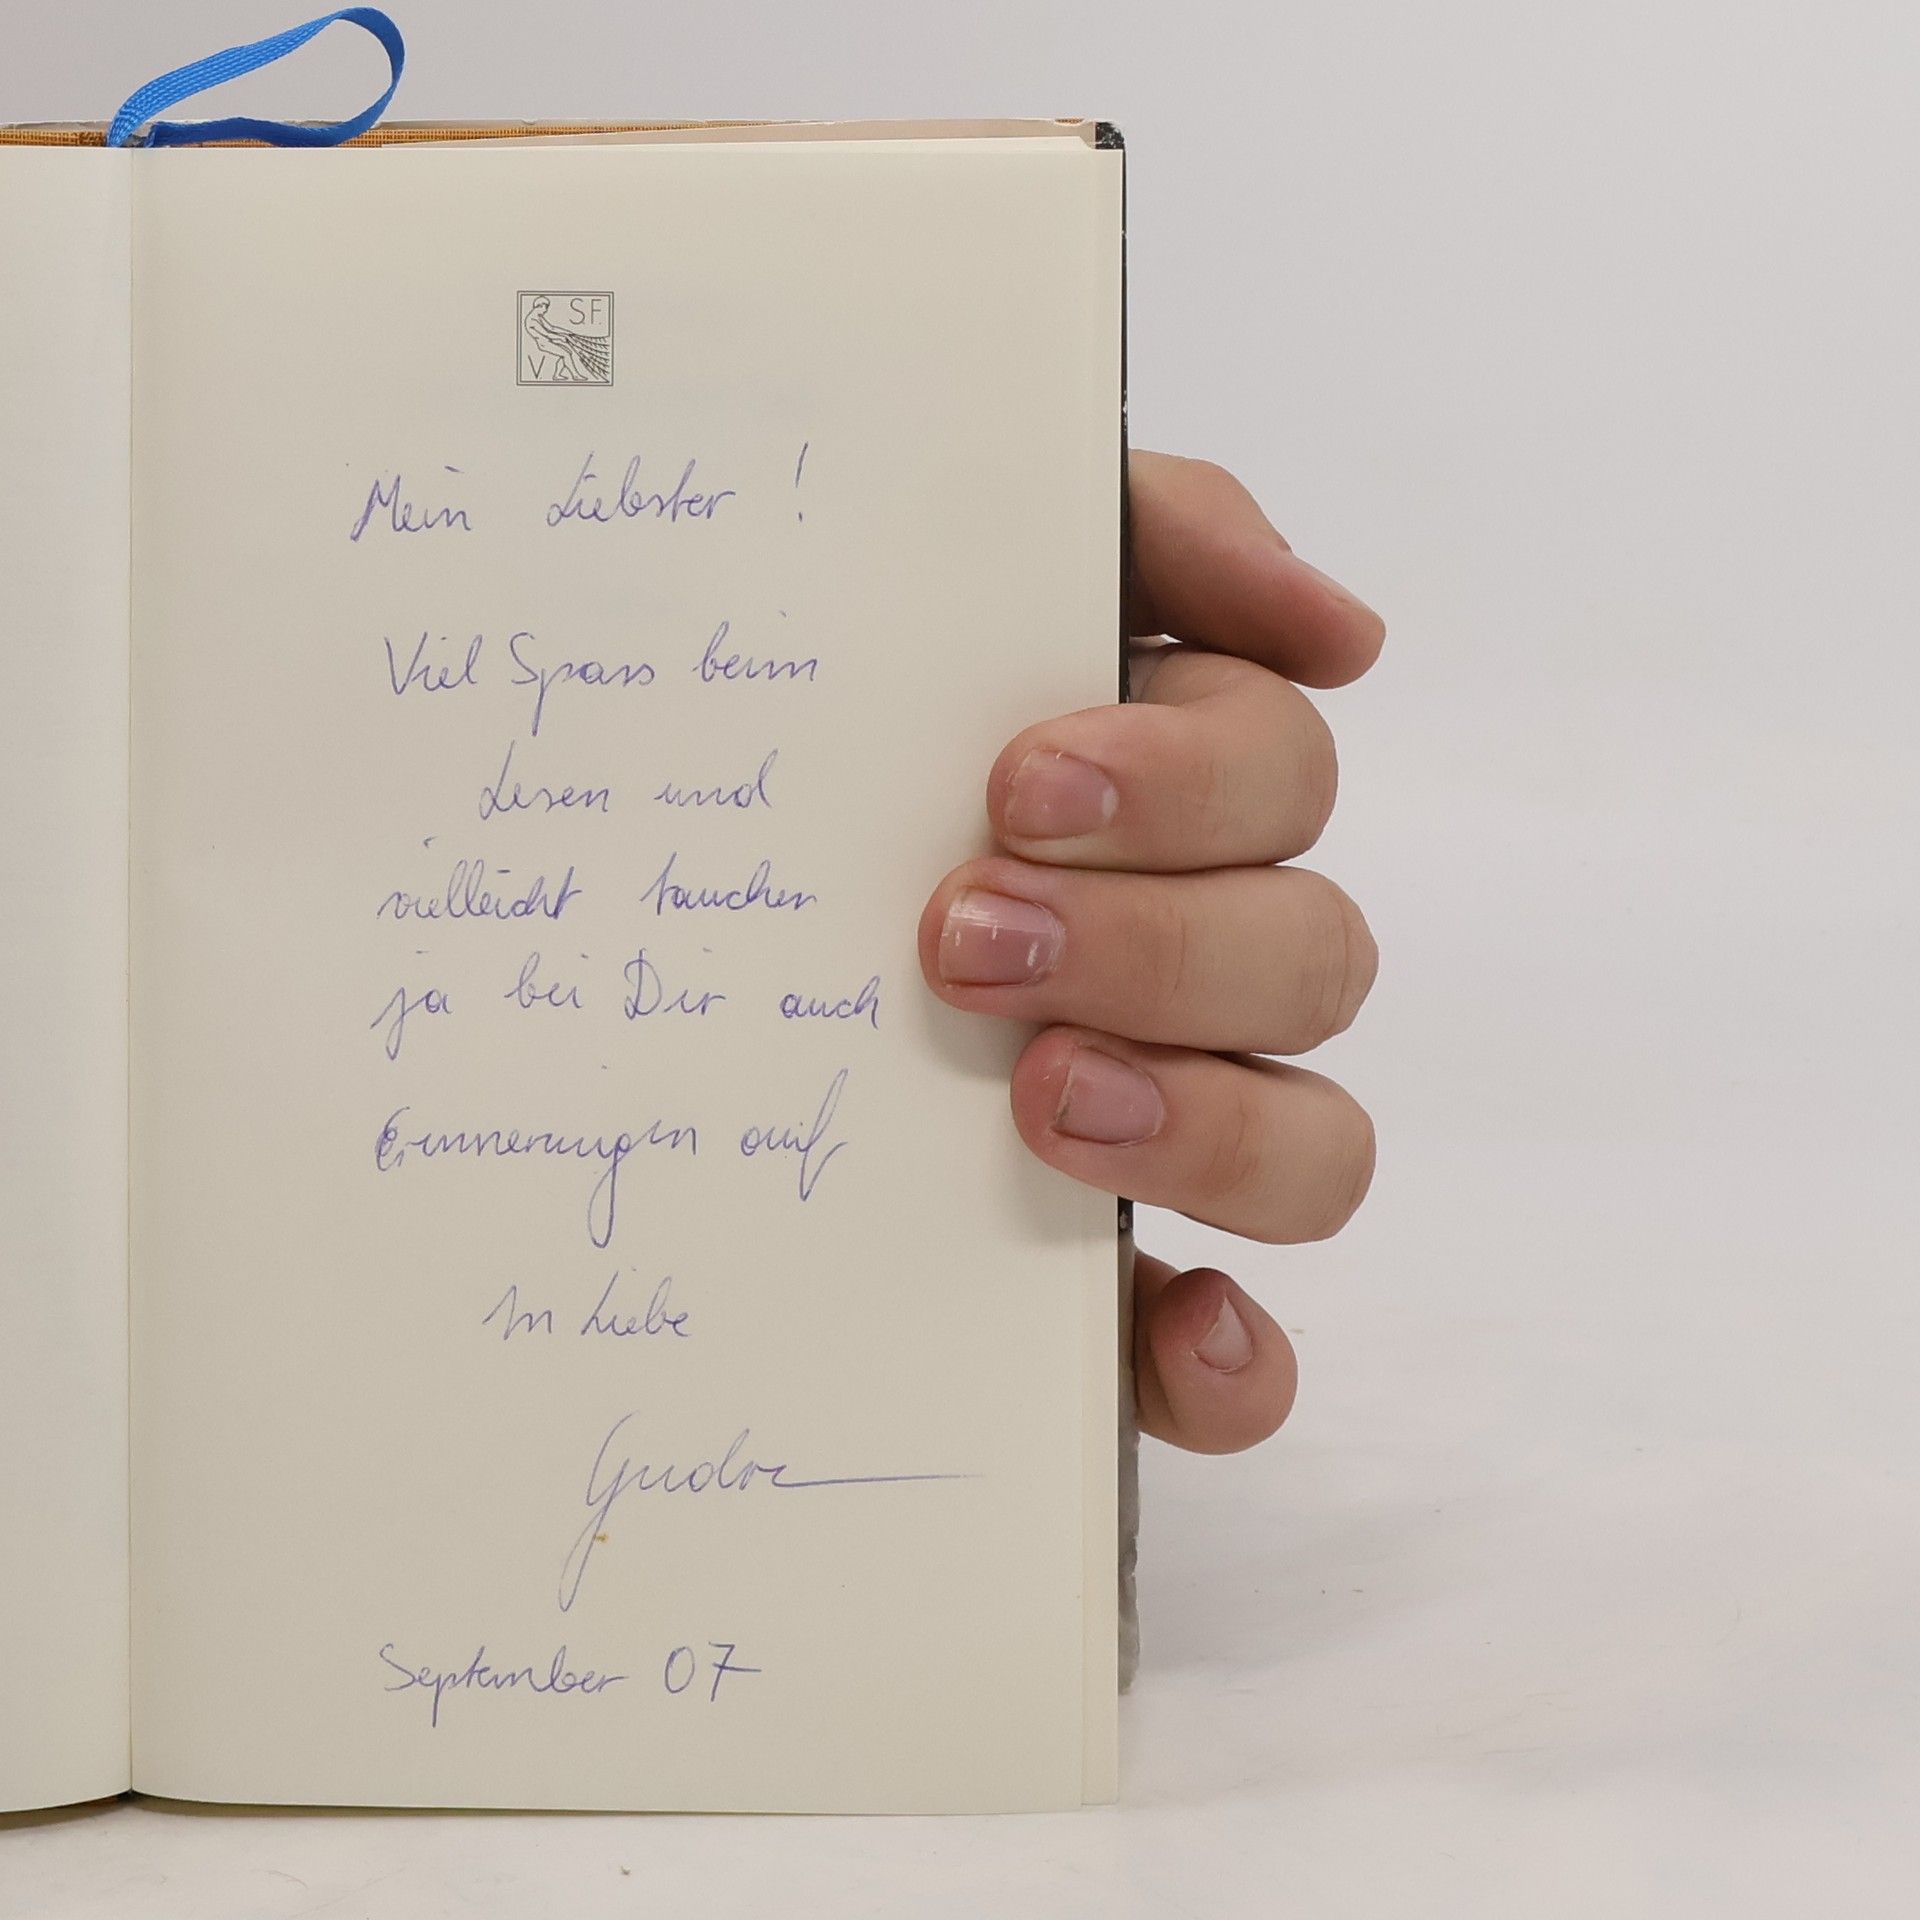 S.F.
V
Mein Liebster !
Viel Spass beim
Lesen und
vielleicht tauchen
ja bei Dir auch
Erinnerungen auf
In Liebe
September 07